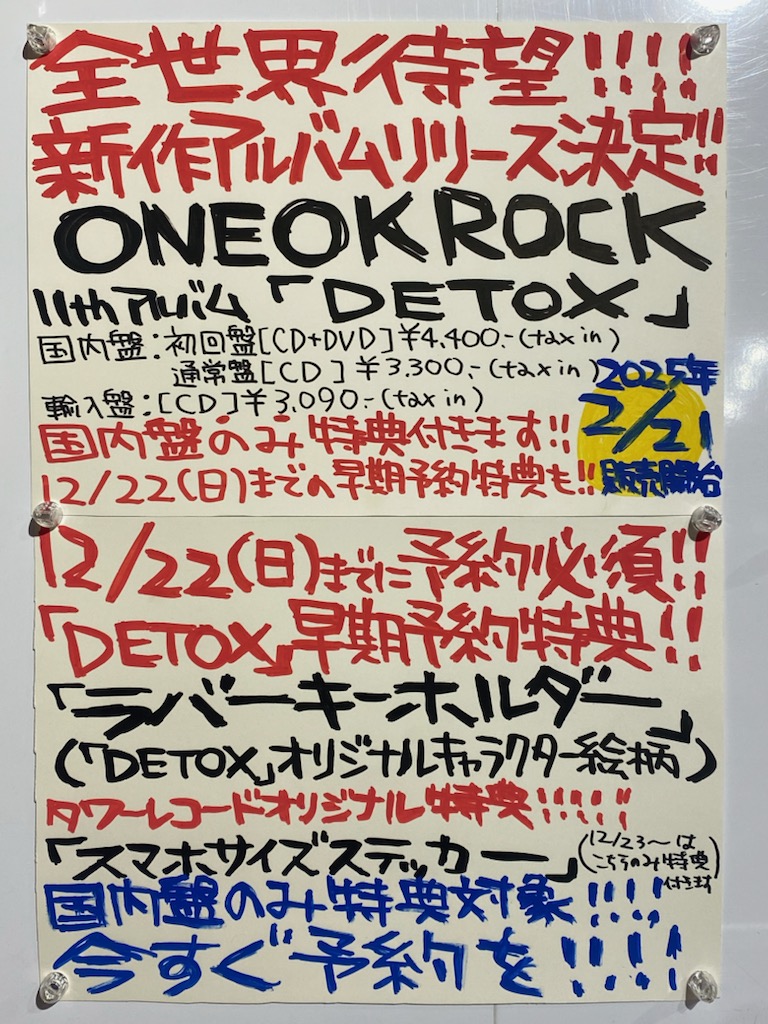 全世界待望!!!!
新作アルバムリリース決定!!
ONE OK ROCK
11thアルバム「DETOX」
国内盤:初回盤[CD+DVD]¥4,400.-(tax in)
通常盤[CD]¥3,300.-(tax in)
輸入盤:[CD]¥3,090.-(tax in)
2025年
2/21
販売開始
国内盤のみ特典付きます!!
12/22(日)までの早期予約特典も!!
12/22(日)までに予約必須!!
「DETOX」早期予約特典!!
「ラバーキーホルダー」
(「DETOX」オリジナルキャラクター絵柄)
タワーレコードオリジナル特典!!!!!
「スマホサイズステッカー」
(12/23~は
こちらのみ特典
付きます)
国内盤のみ特典対象!!!!
今すぐ予約を!!!!